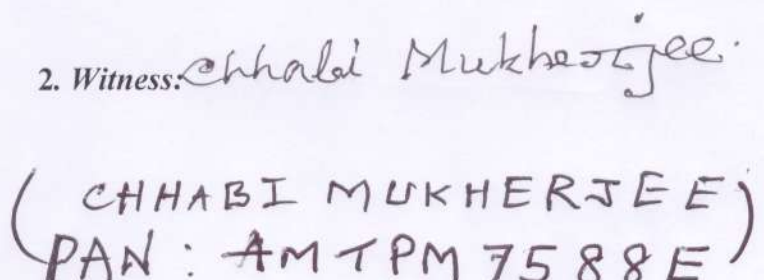 2. Witness: Chhabi Mukherjee.
(CHHABI MUKHERJEE)
PAN: AMTPM7588E